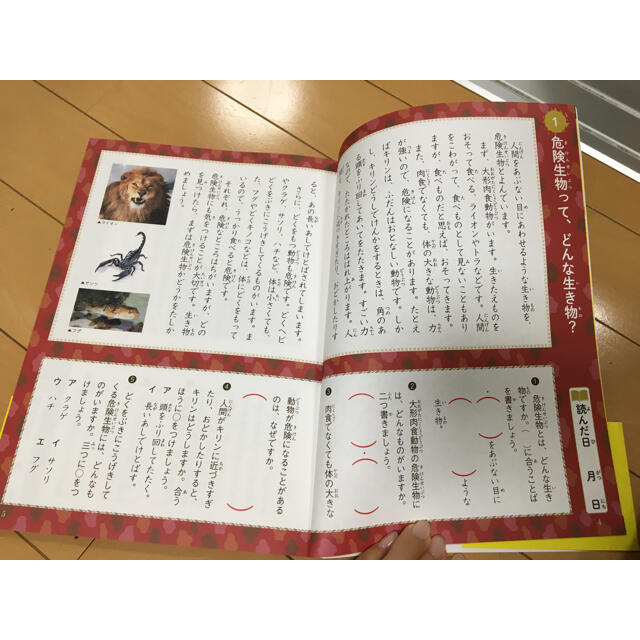 1
危険生物って、どんな生き物?
読んだ日
月
日
人間をあぶない目にあわせるような生き物を、
危険生物とよんでいます。
まず、大形肉食動物がいます。生きたえものを
おそって食べる、ライオンやトラなどです。人間
をこわがって、食べものとして見ないこともあり
ますが、食べものだと思えば、おそってきます。
また、肉食でなくても、体の大きな動物は、力
が強いので、危険になることがあります。たとえ
ばキリンは、ふだんはおとなしい動物です。しか
し、キリンどうしでけんかをするときは、角のあ
る頭をふり回してあいてをたたきます。すごい力
なので、たたかれたところははれ上がります。人
ると、あの長いあしでけとばされてしまいます。
さらに、どくをもつ動物も危険です。どくヘビ
やクラゲ、サソリ、ハチなど、体は小さくても、
どくをぶきにこうげきしてくるものがいます。ま
た、フグやどくキノコなどは、体にどくをもって
いるので、うっかり食べると危険です。
それぞれ、危険なところはちがいますが、どの
危険生物にも気をつけることが大切です。生き物
を見つけたら、まずは危険生物かどうかをたしか
めましょう。
▲ライオン
▲サソリ
▲フグ
❶ 危険生物とは、どんな生き
物ですか。( )に合うことば
を書きましょう。
( )をあぶない目に
( )ような
生き物。
❷ 大形肉食動物の危険生物に
は、どんなものがいますか。
二つ書きましょう。
( )・( )
❸ 肉食でなくても体の大きな
動物が危険になることがある
のは、なぜですか。
( )
❹ 人間がキリンに近づきすぎ
たり、おどかしたりすると、
キリンはどうしますか。合う
ほうに○をつけましょう。
ア 頭をふり回してたたく。
イ 長いあしでけとばす。
❺ どくをぶきにこうげきして
くる危険生物には、どんなも
のがいますか。三つに○をつ
けましょう。
ア クラゲ イ サソリ
ウ ハチ エ フグ
4
5